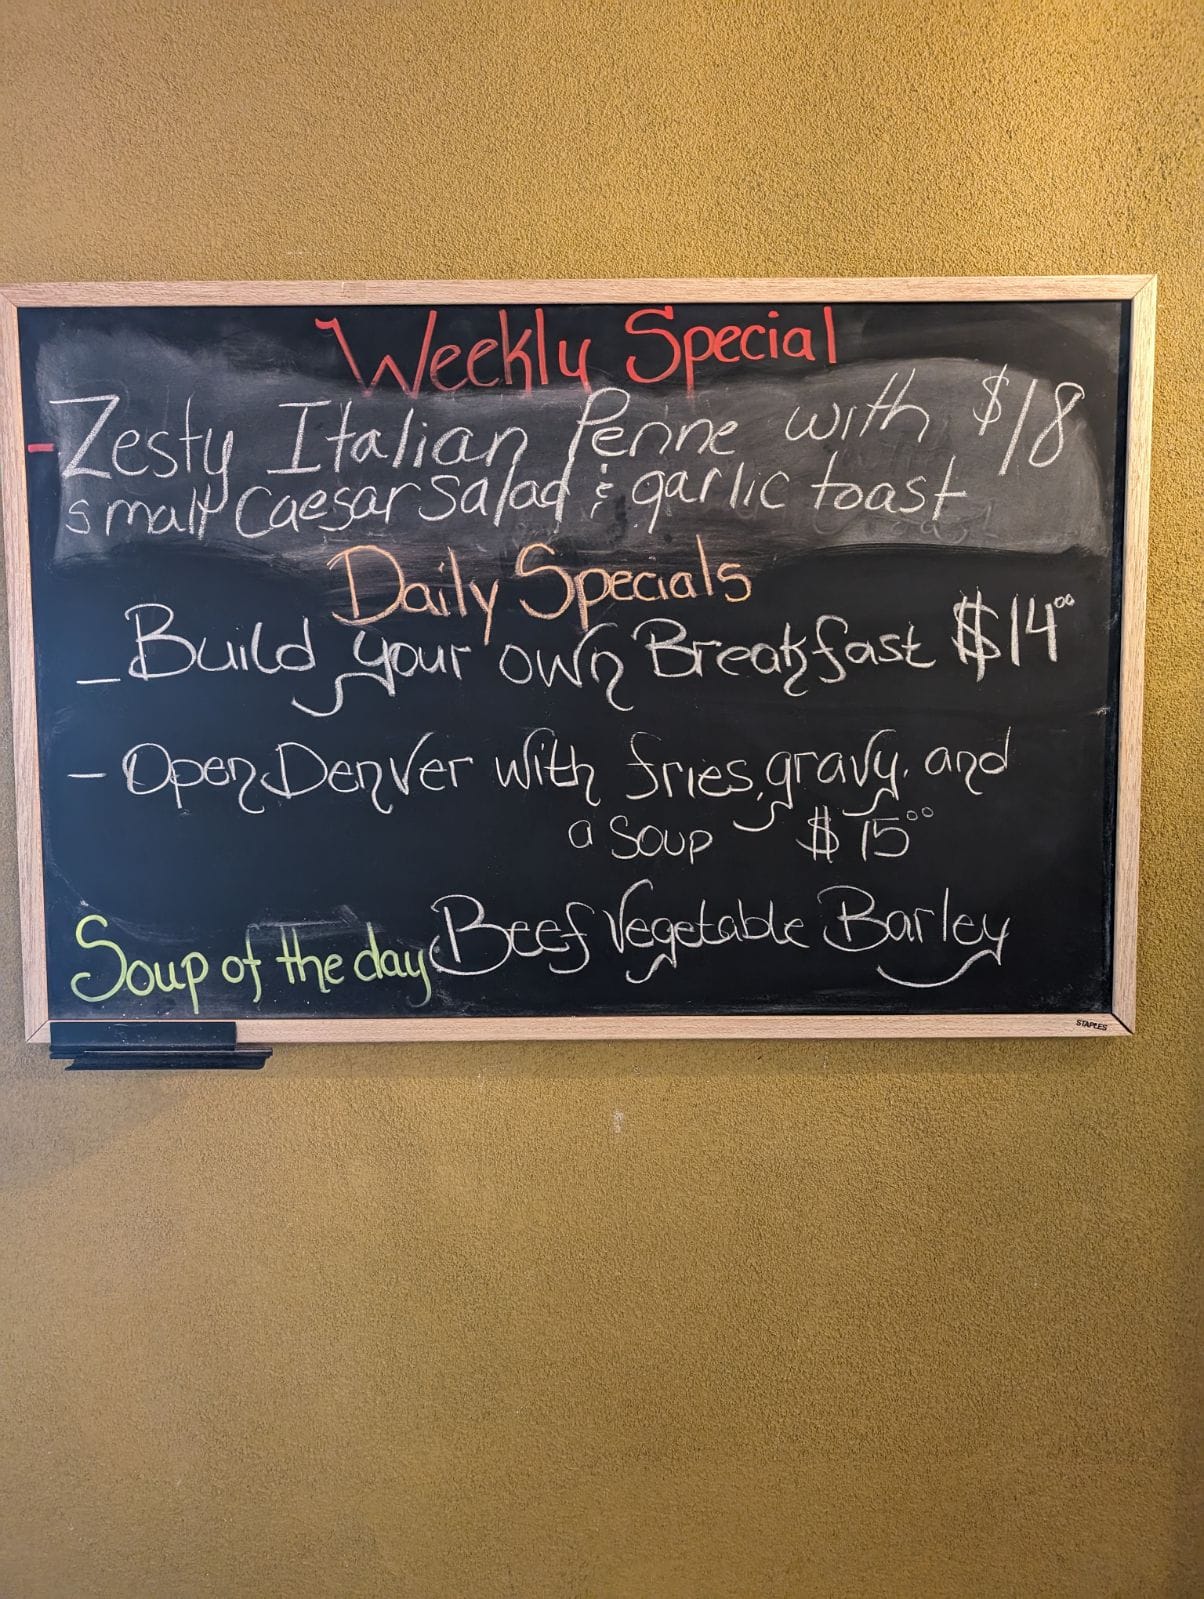 Weekly Special
- Zesty Italian Penne with $18
small Caesar Salad & garlic toast
Daily Specials
- Build your own Breakfast $14.00
- Open Denver with fries, gravy, and
a soup $15.00
Soup of the day Beef Vegetable Barley
STAPLES